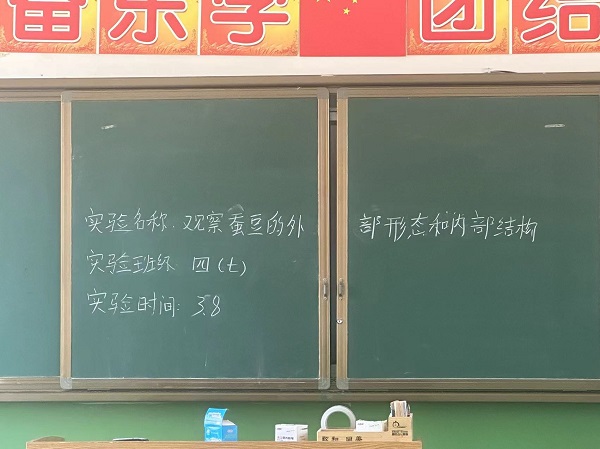 奋乐学 团结
实验名称:观察蚕豆的外部形态和内部结构
实验班级 四(七)
实验时间:3.8